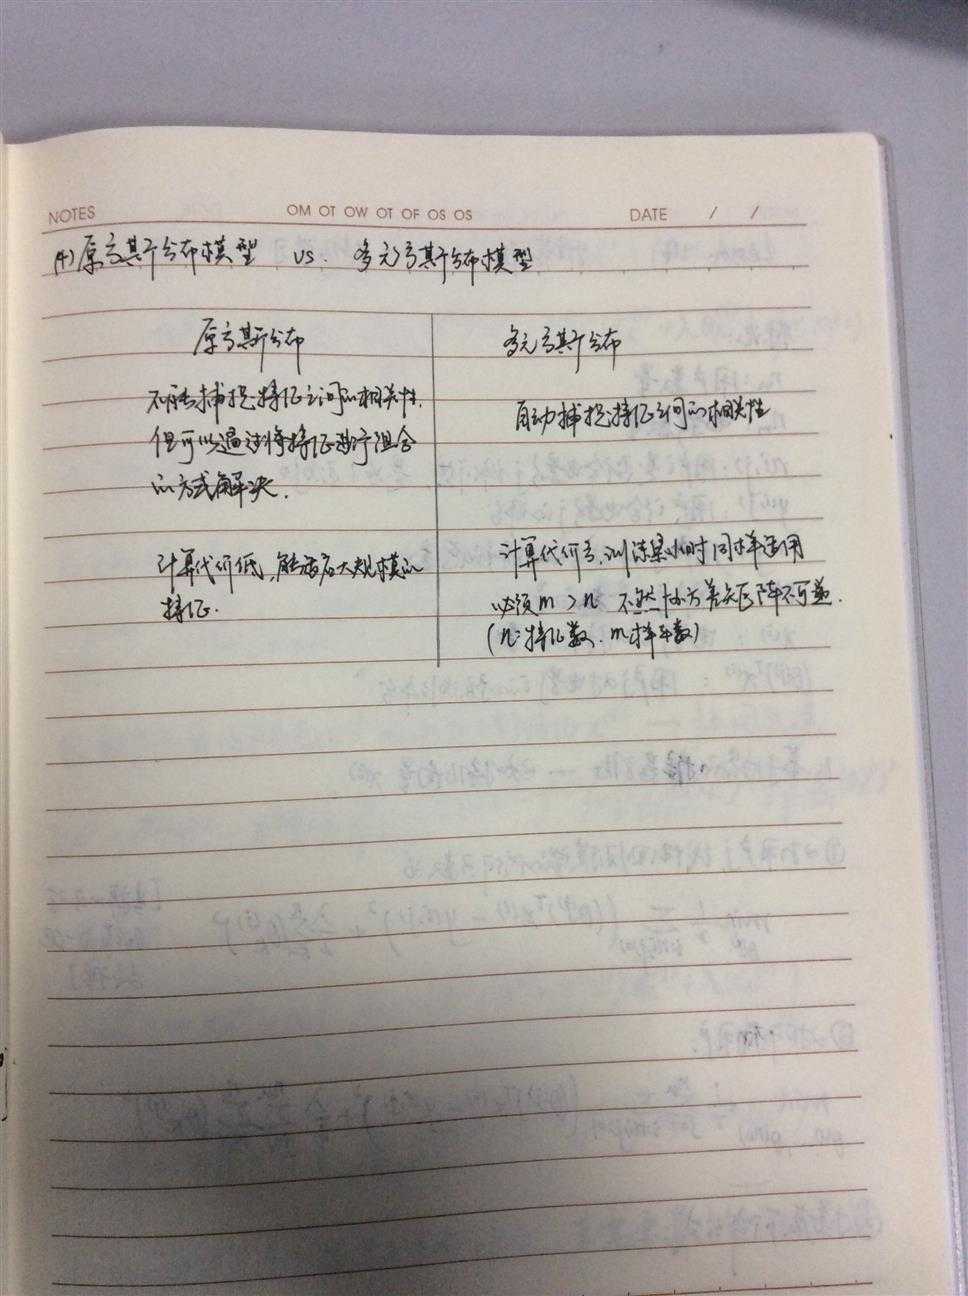 NOTES OM OT OW OT OF OS OS DATE / /
(4) 原高斯分布模型 vs. 多元高斯分布模型
原高斯分布
不能捕捉特征之间的相关性.
但可以通过将特征进行组合
的方式解决.
计算代价低,能适应大规模的
特征.
多元高斯分布
自动捕捉特征之间的相关性
计算代价高,训练集小时同样适用
必须m>n 不然协方差矩阵不可逆.
(n:特征数. m样本数)